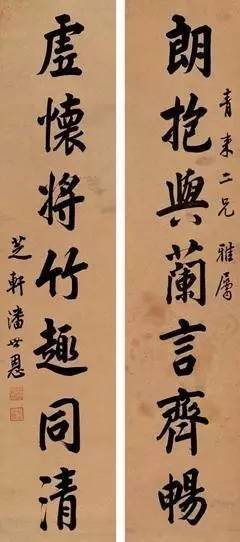 青来二兄 雅屬
朗抱與蘭言齊暢
虛懷將竹趣同清
芝軒潘世恩